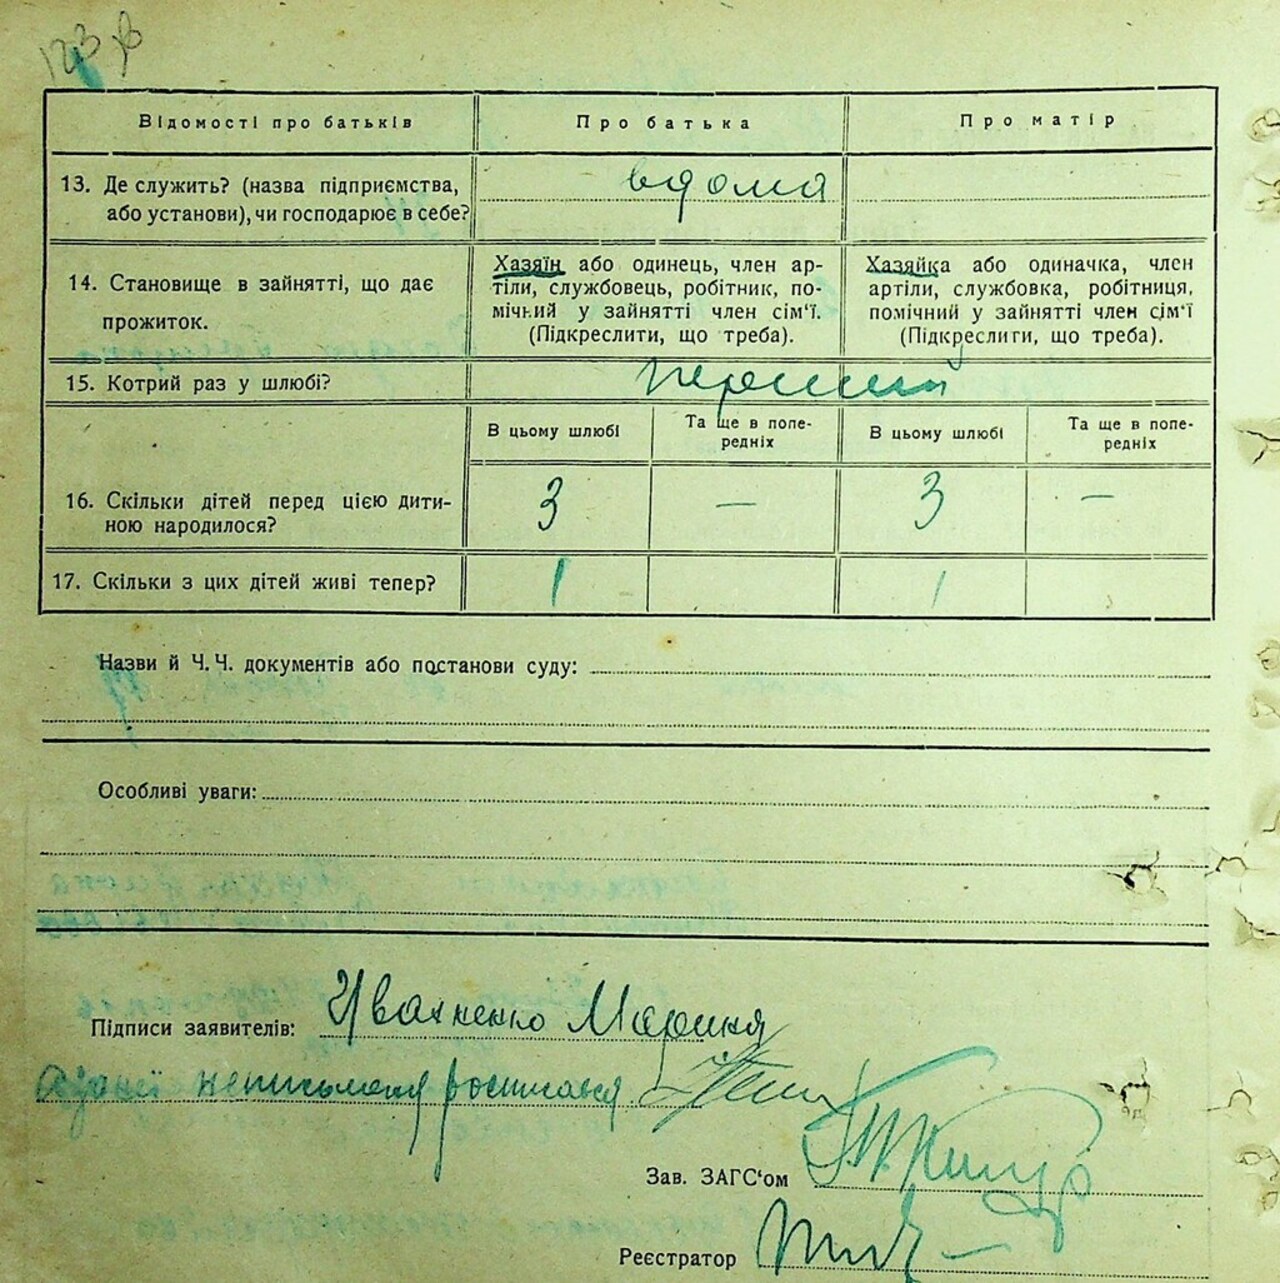 Відомості про батьків Про батька Про матір
13. Де служить? (назва підприємства, або установи), чи господарює в себе? вдома
14. Становище в зайнятті, що дає прожиток.
Хазяїн або одинець, член ар-
тіли, службовець, робітник, по-
мічний у зайнятті член сім‘ї.
(Підкреслити, що треба).
Хазяйка або одиначка, член
артіли, службовка, робітниця,
помічний у зайнятті член сім‘ї
(Підкреслити, що треба).
15. Котрий раз у шлюбі? перший
В цьому шлюбі Та ще в попе-редніх В цьому шлюбі Та ще в попе-редніх
16. Скільки дітей перед цією дити-
ною народилося? 3 — 3 —
17. Скільки з цих дітей живі тепер? 1 1
Назви й Ч. Ч. документів або постанови суду:
Особливі уваги:
Підписи заявителів: Івахненко Марина
неписьменна росписався
Зав. ЗАГС‘ом
Реєстратор